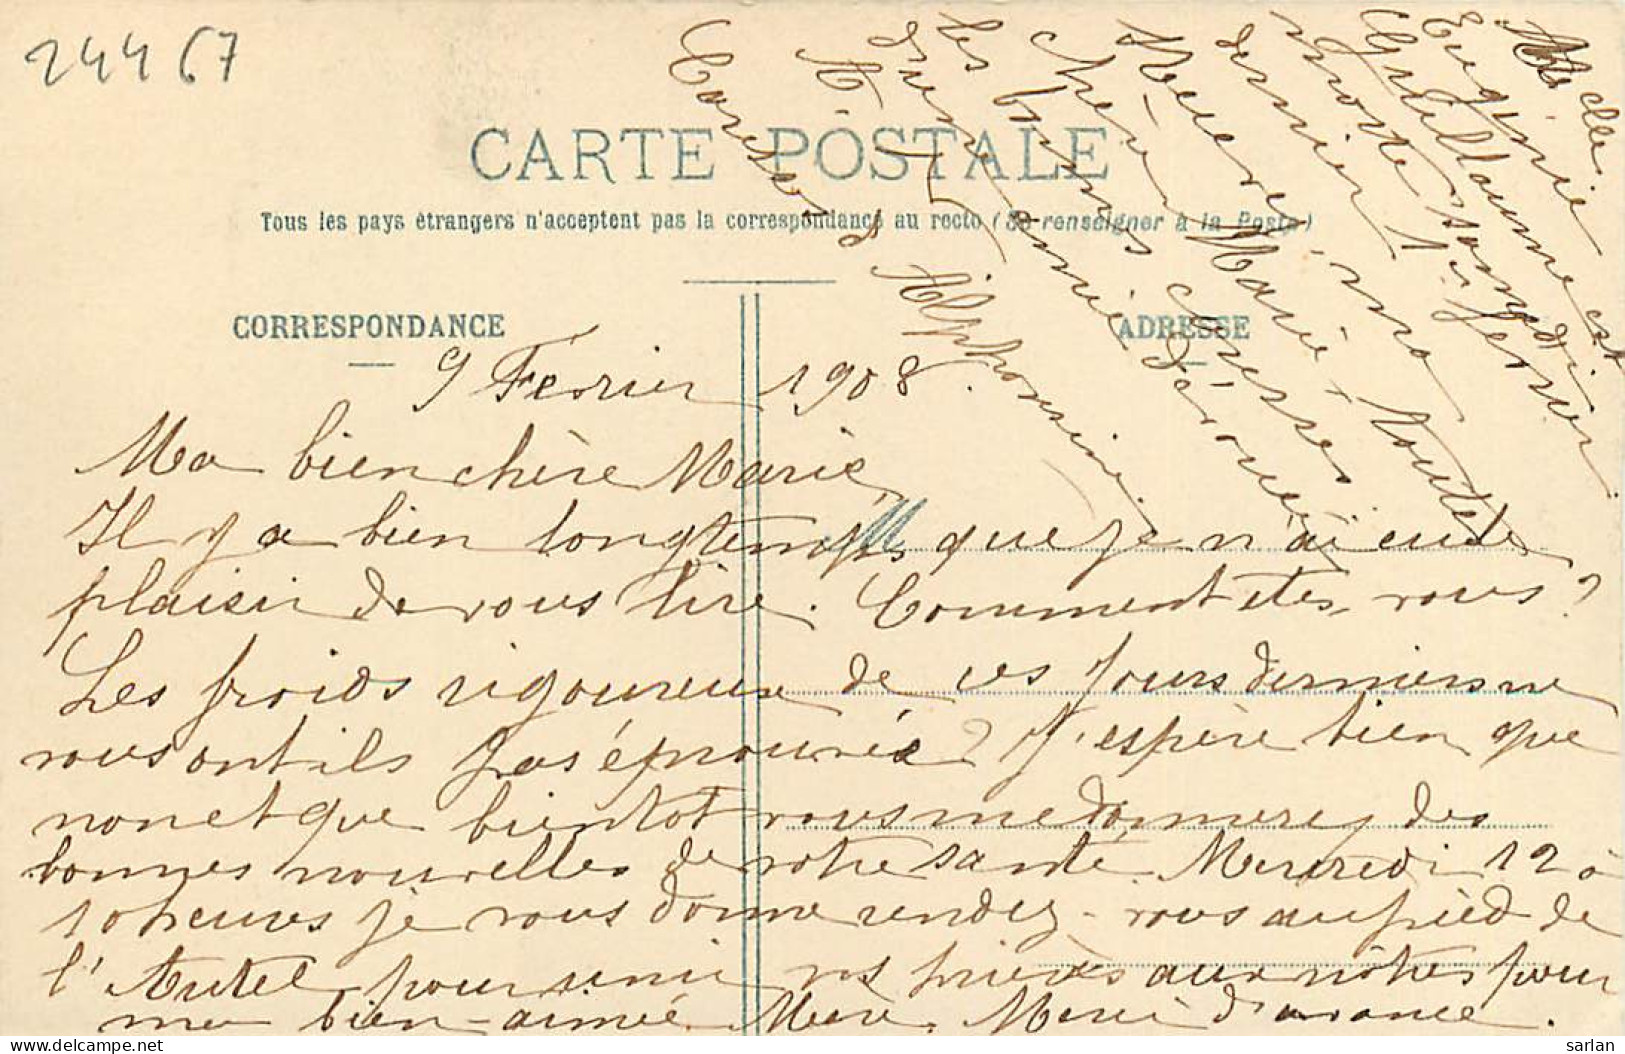 24467
CARTE POSTALE
Tous les pays étrangers n'acceptent pas la correspondance au recto (Se renseigner à la Poste)
CORRESPONDANCE
ADRESSE
9 Février 1908.
Ma bien chère Marie,
Il y a bien longtemps que je n'ai eu de
plaisir de vous lire. Comment êtes vous?
Les froids rigoureux de ces jours derniers ne
vous ont ils pas éprouvée? J'espère bien que
non et que bientôt vous me donnerez des
bonnes nouvelles de votre santé. Mercredi 12 à
10 heures je vous donne rendez-vous au pied de
l'Autel pour unir vos prières aux nôtres pour
ma bien-aimée Mère. Merci d'avance.
Melle
Eugénie
Guillaume est
morte samedi
dernier 1er février
à 4 heures, ma
chère Marie, toutes
les bonnes caresses
d'une amie dévouée
A.
Caresses d'Alphonsine
delcampe.net
sarlan